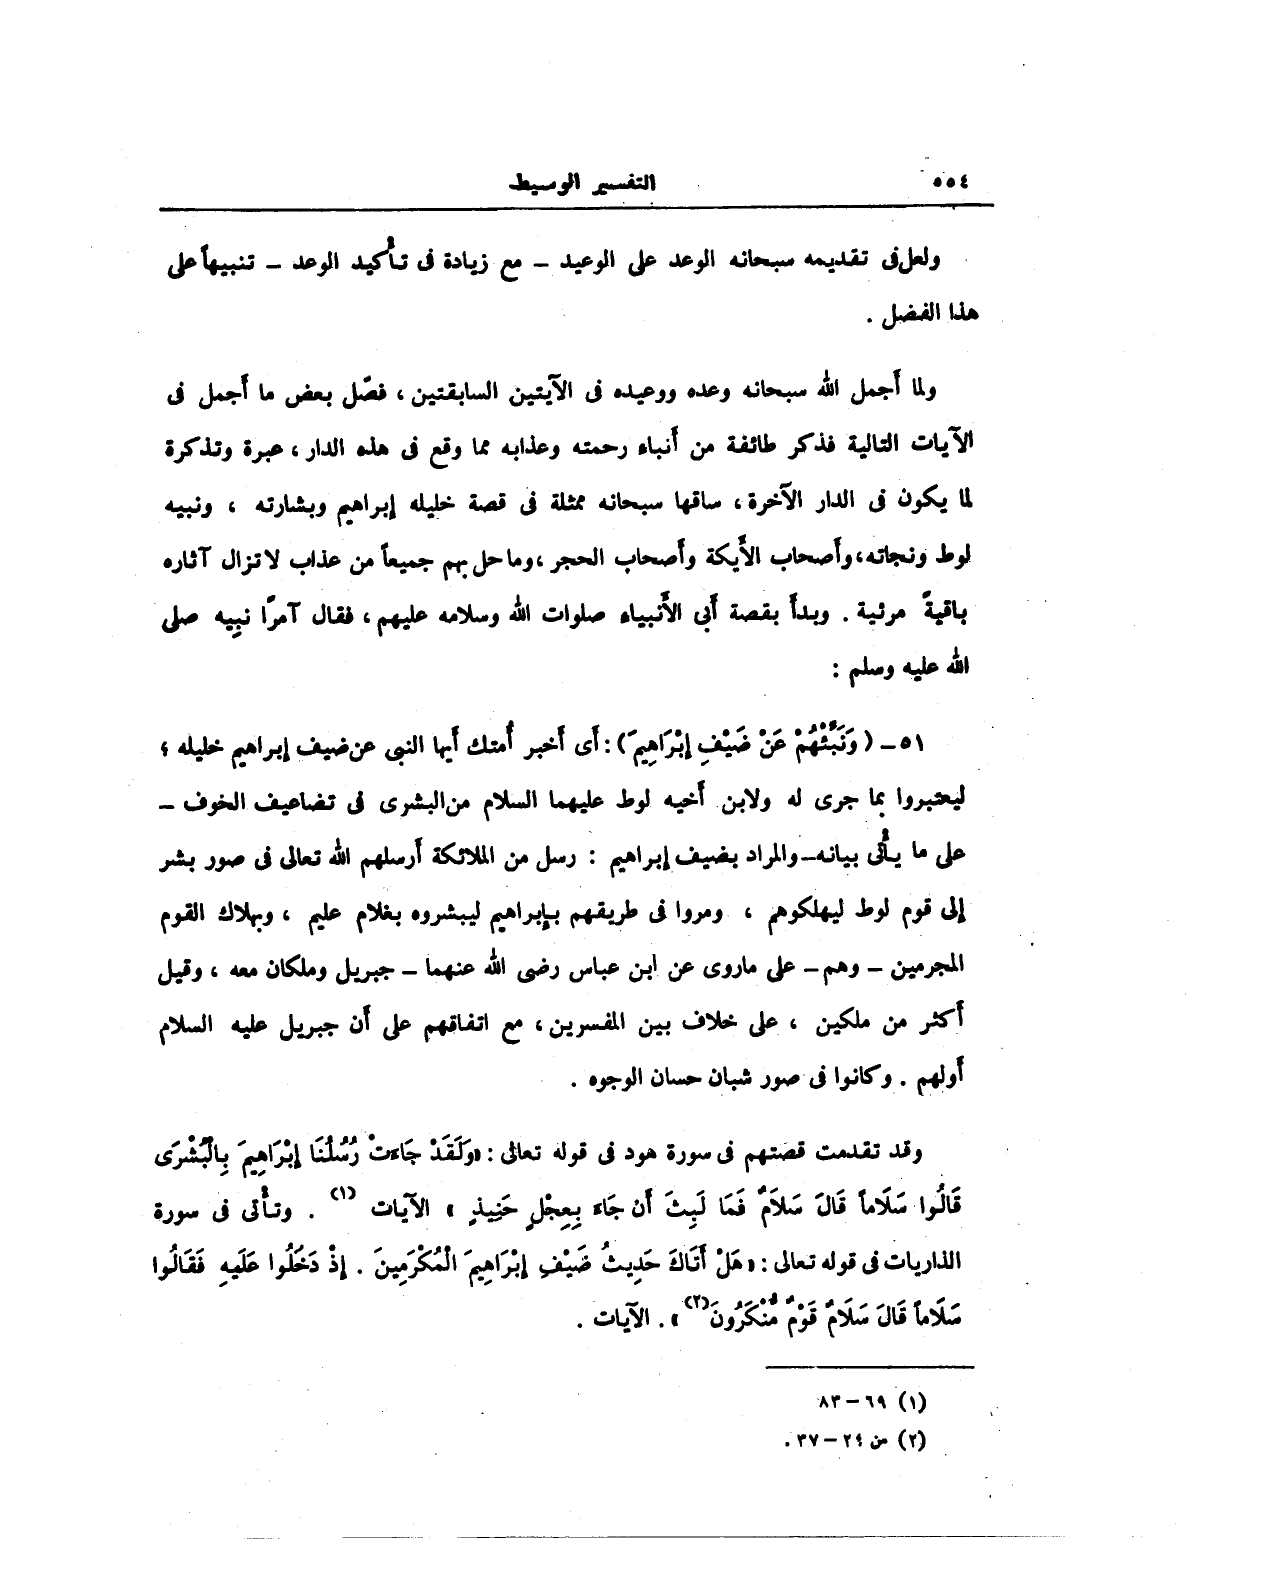 ٥٥٤ التفسير الوسيط
ولعل فى تقديمه سبحانه الوعد على الوعيد – مع زيادة فى تأكيد الوعد – تنبيهاً على
هذا الفضل .
ولما أجمل الله سبحانه وعده ووعيده فى الآيتين السابقتين ، فصّل بعض ما أجمل فى
الآيات التالية فذكر طائفة من أنباء رحمته وعذابه مما وقع فى هذه الدار ، عبرة وتذكرة
لما يكون فى الدار الآخرة ، ساقها سبحانه ممثلة فى قصة خليله إبراهيم وبشارته ، ونبيه
لوط ونجاته ، وأصحاب الأيكة وأصحاب الحجر ، وما حل بهم جميعاً من عذاب لاتزال آثاره
باقيةً مرئية . وبدأ بقصة أبى الأنبياء صلوات الله وسلامه عليهم ، فقال آمرًا نبيه صلى
الله عليه وسلم :
٥١ – ( وَنَبِّئْهُمْ عَنْ ضَيْفِ إِبْرَاهِيمَ ) : أى أخبر أُمتك أيها النبى عن ضيف إبراهيم خليله ؛
ليعتبروا بما جرى له ولابن أخيه لوط عليهما السلام من البشرى فى تضاعيف الخوف –
على ما يأتى بيانه – والمراد بضيف إبراهيم : رسل من الملائكة أرسلهم الله تعالى فى صور بشر
إلى قوم لوط ليهلكوهم ، ومروا فى طريقهم بإبراهيم ليبشروه بغلام عليم ، وبهلاك القوم
المجرمين – وهم – على ماروى عن ابن عباس رضى الله عنهما – جبريل وملكان معه ، وقيل
أكثر من ملكين ، على خلاف بين المفسرين ، مع اتفاقهم على أن جبريل عليه السلام
أولهم . وكانوا فى صور شبان حسان الوجوه .
وقد تقدمت قصتهم فى سورة هود فى قوله تعالى : « وَلَقَدْ جَاءَتْ رُسُلُنَا إِبْرَاهِيمَ بِالْبُشْرَى
قَالُوا سَلَاماً قَالَ سَلاَمٌ فَمَا لَبِثَ أَن جَاءَ بِعِجْلٍ حَنِيذٍ » الآيات (١) . وتأتى فى سورة
الذاريات فى قوله تعالى : « هَلْ أَتَاكَ حَدِيثُ ضَيْفِ إِبْرَاهِيمَ الْمُكْرَمِينَ . إِذْ دَخَلُوا عَلَيهِ فَقَالُوا
سَلَاماً قَالَ سَلَامٌ قَوْمٌ مُّنْكَرُونَ (٢) » . الآيات .
(١) ٦٩ – ٨٣
(٢) من ٢٤ – ٣٧ .